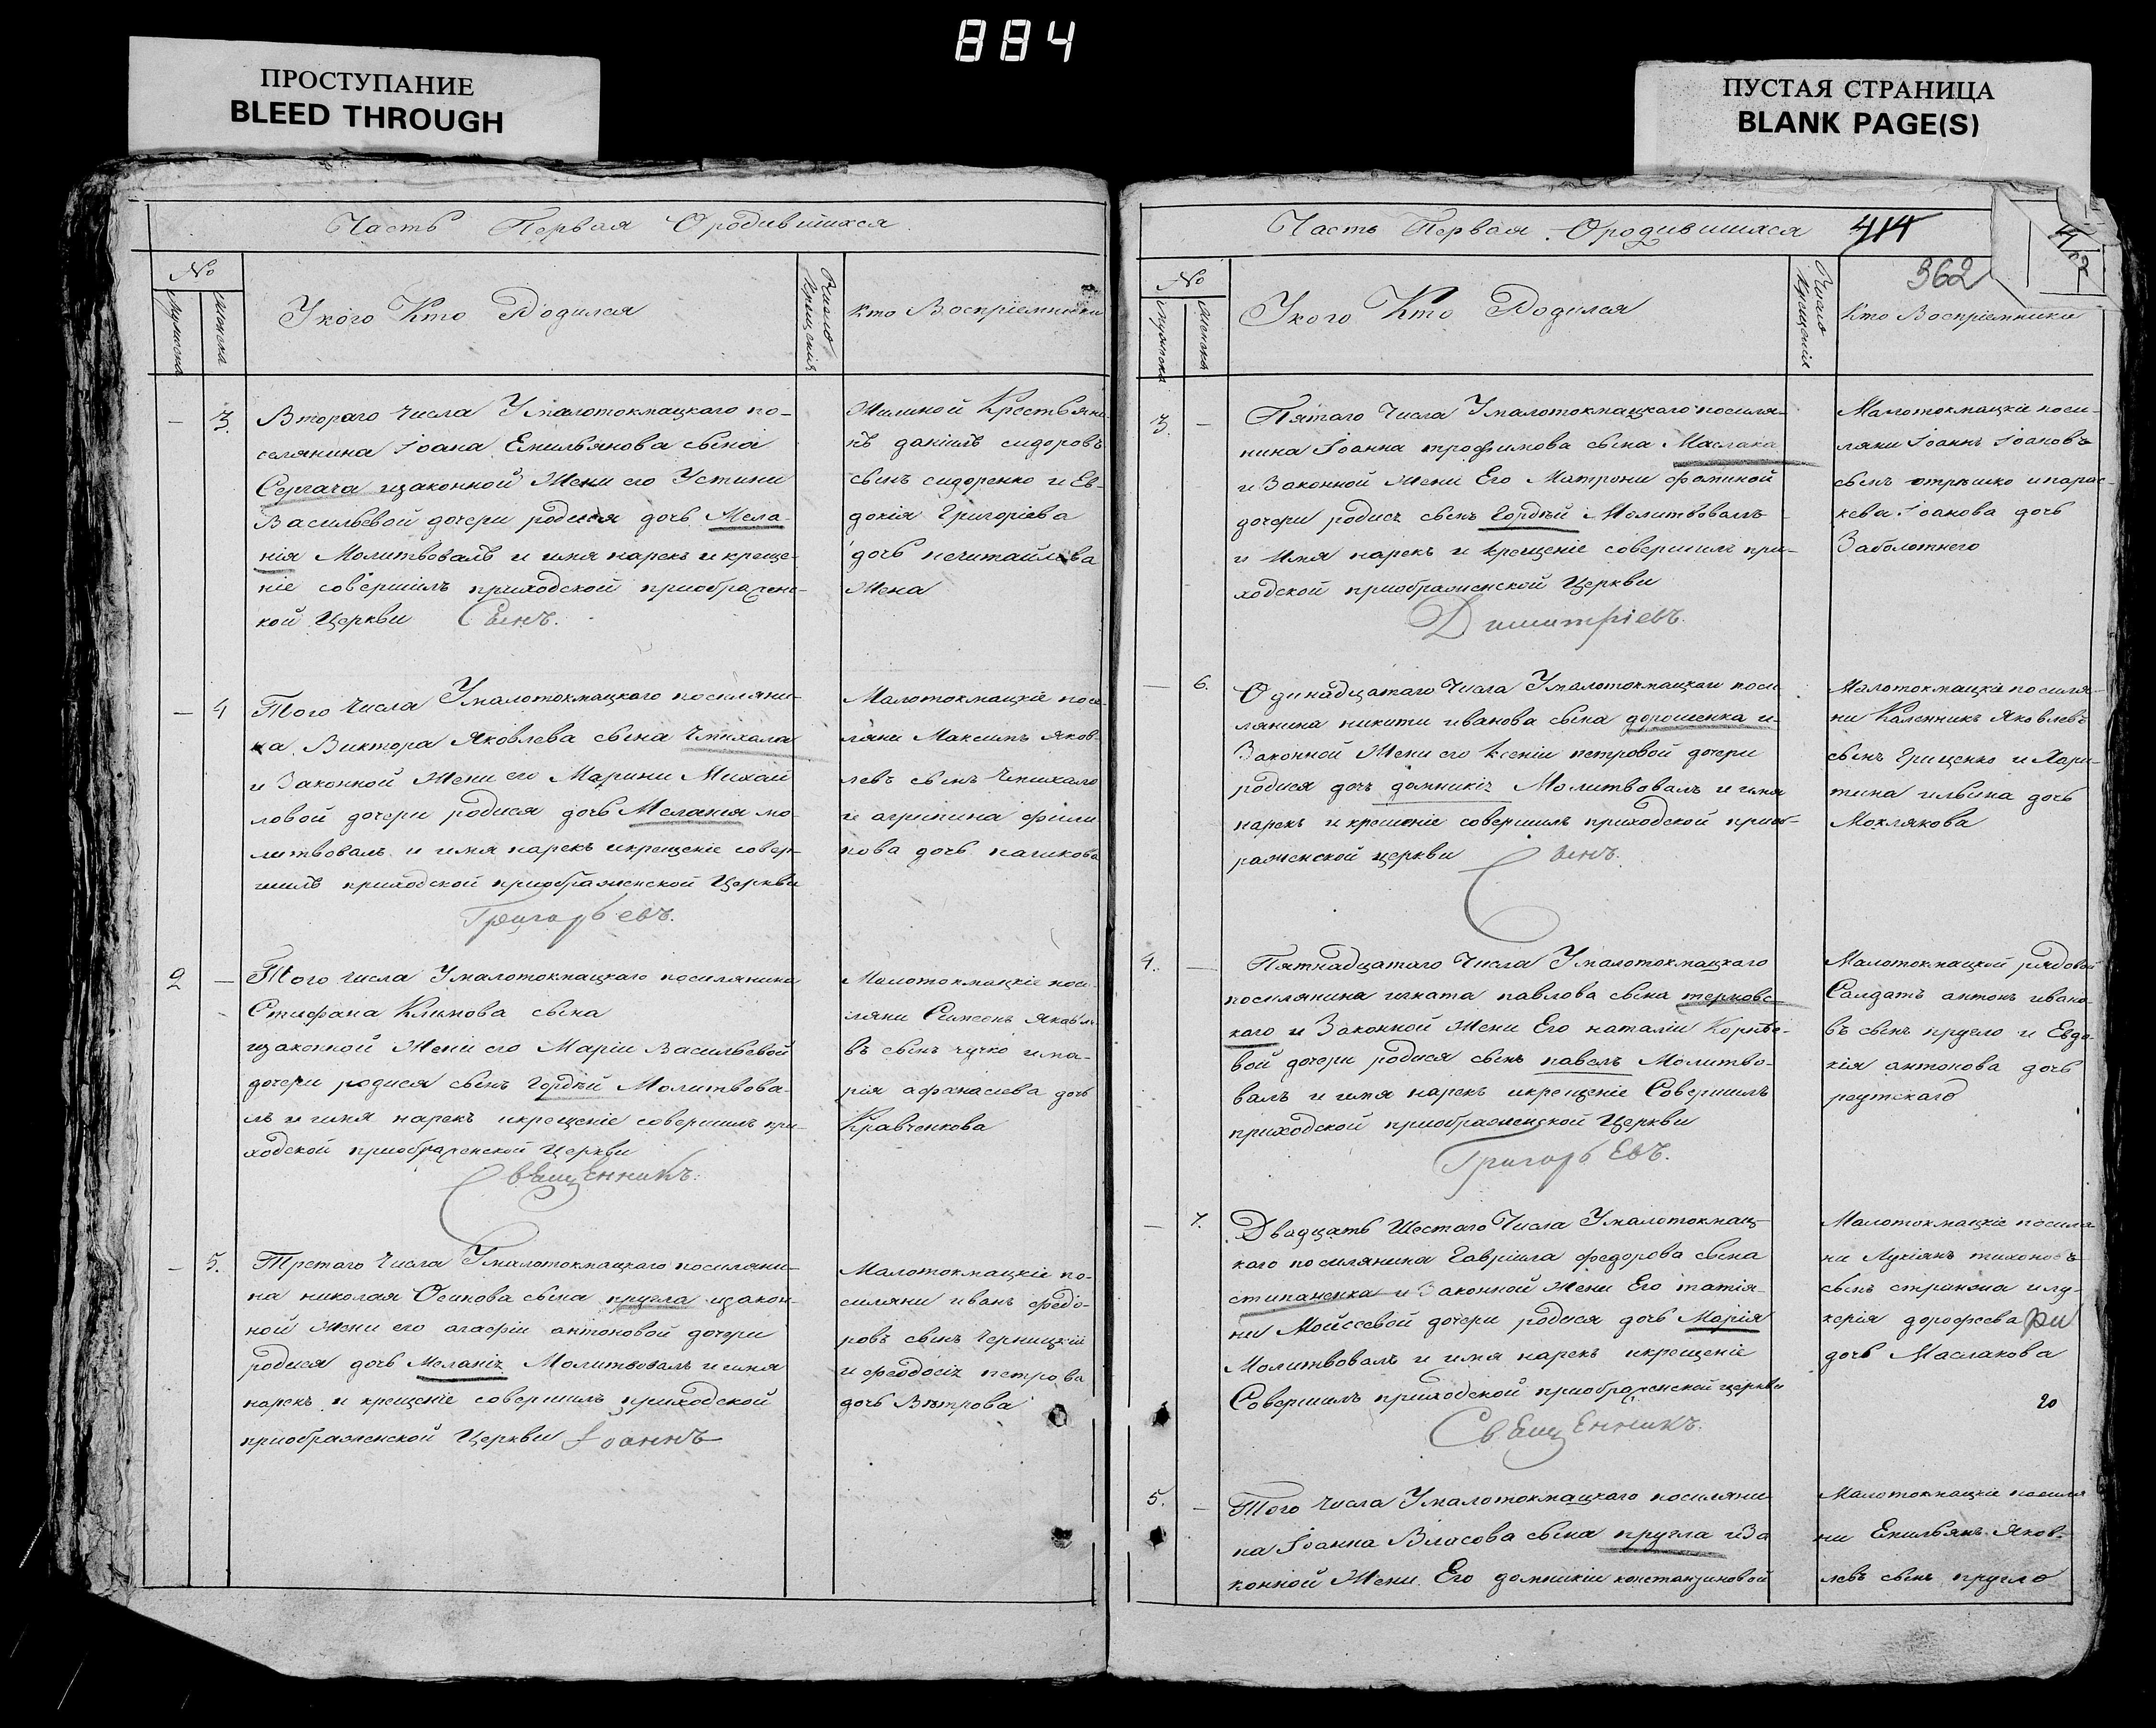 884
ПРОСТУПАНИЕ
BLEED THROUGH
ПУСТАЯ СТРАНИЦА
BLANK PAGE(S)
Часть Первая О родившихся
No
Мужеска
Женска
У кого Кто Родился
Число Крещенія
Кто Воспріемники
3.
Втораго Числа У малотокмацкаго по-
селянина Іоана Емильянова сына
Сергача изаконной Жени его Устини
Васильевой дочери родися дочь Мела-
нія Молитвовалъ и имя нарекъ и креще-
ніе совершилъ приходской приображенс-
кой Церкви Сынъ.
Жилиной Крестьяни-
нъ даніилъ сидоровъ
сынъ сидоренко и Ев-
докія Григоріева
дочь нечитайлова
Жена
4
Того Числа У малотокмацкого поселяни-
на Виктора Яковлева сына Чепихала
и Законной Жени его Марини Михаи
ловой дочери родися дочь Меланія мо-
литвовалъ и имя нарекъ икрещеніе совер-
шилъ приходской приображенской Церкви
Григорьевъ.
Малотокмацкіе посе-
ляни Максимъ Яков-
левъ сынъ Чепихало
и агрипина фили
пова дочь пашкова
2
Того числа У малотокмацкаго поселянина
Стефана Климова сына
изаконной Жени его Маріи Васильевой
дочери родися сынъ Гордѣй Молитвова-
лъ и имя нарекъ икрещеніе совершилъ при-
ходской приображенской Церкви
Священникъ.
Малотокмацкіе посе-
ляни Симеонъ Яковле-
въ сынъ чучко и ма-
рія афанасиева дочь
Кравченкова
5.
Третаго Числа У малотокмацкаго поселяни-
на николая Осипова сына пругла изакон-
ной Жени его агафіи антоновой дочери
родися дочь Меланія Молитвовалъ и имя
нарекъ и крещеніе совершилъ приходской
приображенской Церкви Іоаннъ
Малотокмацкіе по-
селяни иванъ федо-
ровъ сынъ Черницкій
и феодосія петрова
дочь Вѣтрова
Часть Первая О родившихся
414
362
No
Мужеска
Женска
У кого Кто Родился
Число Крещенія
Кто Воспріемники
3.
Пятаго Числа У малотокмацкаго поселя-
нина Іоанна трофимова сына Маслака
и Законной Жени Его Матрони фоминой
дочери родися сынъ Гордѣй Молитвовалъ
и Имя нарекъ и крещеніе совершилъ при-
ходской приображенской Церкви
Димитріевъ.
Малотокмацкіе посе-
ляни Іоаннъ Іоановъ
сынъ отрѣшко и парас-
кева Іоанова дочь
Заболотнего
6.
Одинадцатаго Числа У малотокмацкаго посе
лянина никити иванова сына дорошенка и
Законной Жени его ксеніи петровой дочери
родися дочь домникія Молитвовалъ и имя
нарекъ и крещеніе совершилъ приходской приоб-
раженской церкви Сынъ.
Малотокмацкіе поселя-
ни Каленникъ Яковлевъ
сынъ Грищенко и Хари-
тина ильина дочь
Моклякова
4.
Пятнадцатаго Числа У малотокмацкаго
поселянина игната павлова сына терновс-
каго и Законной Жени Его наталіи Корнѣе-
вой дочери родися сынъ павелъ Молитво-
валъ и имя нарекъ икрещеніе Совершилъ
приходской приображенской Церкви
Григорьевъ.
Малотокмацкой рядовой
Салдатъ антонъ ивано-
въ сынъ пругло и Евдо-
кія антонова дочь
реутскаго
7.
Двадцать Шестого Числа У малотокмац-
кого поселянина Гавріила федорова сына
стипаненка и Законной Жени Его татія-
ни Мойсеевой дочери родися дочь Марія
Молитвовалъ и имя нарекъ икрещеніе
Совершилъ приходской приображенской церкви
Священникъ.
Малотокмацкіе поселя
ни Лукіянъ тихоновъ
сынъ стрижена и лу-
керія дорофеева
дочь Маслакова
20
5.
Того Числа У малотокмацкаго поселяни
на Іоанна Власова сына пругла и За
конной Жени Его домникіи констанзиновой
Малотокмацкіе поселя
ни Емильянъ Яков-
левъ сынъ пругло